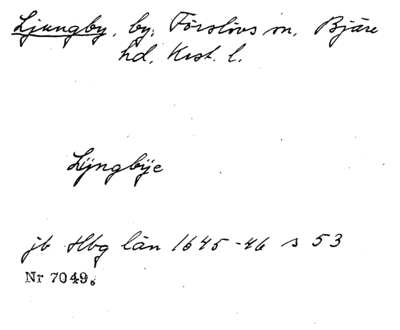 Ljungby, by, Förslövs sn, Bjäre
hd, Krist. l.
Lÿngbÿe
jb Hbg län 1645-46 s 53
Nr 7049.